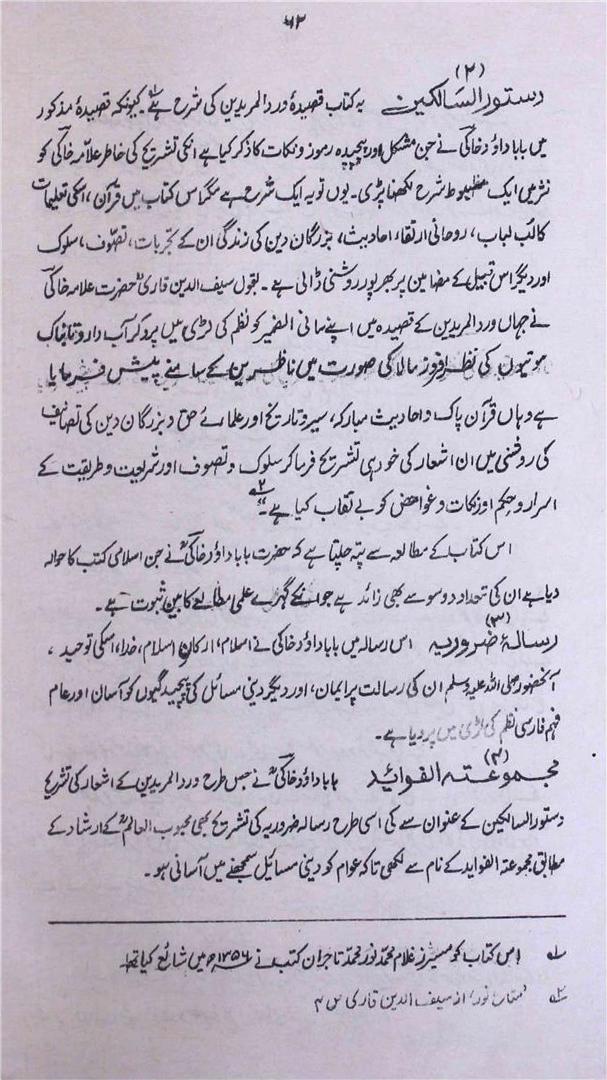 ۵۲
(۲)
دستور السالکین یہ کتاب قصیدۂ ورد المریدین کی شرح ہے۱ کیونکہ قصیدۂ مذکور
میں بابا داؤد خاکیؒ نے جن مشکل اور پیچیدہ رموز و نکات کا ذکر کیا ہے انکی تشریح کی خاطر علامہ خاکیؒ کو
نثر میں ایک مضبوط شرح لکھنا پڑی۔ یوں تو یہ ایک شرح ہے مگر اس کتاب میں قرآن، اسکی تعلیمات
کا لب لباب، روحانی ارتقاء، احادیث، بزرگان دین کی زندگی ان کے تجربات، تصوّف، سلوک
اور دیگر اس قبیل کے مضامین پر بھرپور روشنی ڈالی ہے۔ بقول سیف الدین قاری "حضرت علامہ خاکیؒ
نے جہاں ورد المریدین کے قصیدہ میں اپنے مافی الضمیر کو نظم کی لڑی میں پرو کر آب دار و تابناک
موتیوں کی نظر افروز مالا کی صورت میں ناظرین کے سامنے پیش فرمایا
ہے وہاں قرآن پاک و احادیث مبارکہ، سیر و تاریخ اور علمائے حق و بزرگان دین کی تصانیف
کی روشنی میں ان اشعار کی خود ہی تشریح فرما کر سلوک و تصوف اور شریعت و طریقت کے
اسرار و حِکم اور نکات و غوامض کو بے نقاب کیا ہے۔"۲
اس کتاب کے مطالعہ سے پتہ چلتا ہے کہ حضرت بابا داؤد خاکیؒ نے جن اسلامی کتب کا حوالہ
دیا ہے ان کی تعداد دو سو سے بھی زائد ہے جو انکے گہرے علمی مطالعے کا مبین ثبوت ہے۔
(۳)
رسالۂ ضروریہ اس رسالہ میں بابا داؤد خاکی نے اسلام، ارکانِ اسلام، خدا، اسکی توحید،
آنحضور صلی اللہ علیہ وسلم ان کی رسالت پر ایمان، اور دیگر دینی مسائل کی پیچیدگیوں کو آسان اور عام
فہم فارسی نظم کی لڑی میں پر دیا ہے۔
(۴)
مجموعتہ الفوائد بابا داؤد خاکیؒ نے جس طرح ورد المریدین کے اشعار کی تشریح
دستور السالکین کے عنوان سے کی اسی طرح رسالہ ضروریہ کی تشریح بھی محبوب العالمؒ کے ارشاد کے
مطابق مجموعتہ الفواید کے نام سے لکھی تاکہ عوام کو دینی مسائل سمجھنے میں آسانی ہو۔
۱ اس کتاب کو میسرز غلام محمد نور محمد تاجران کتب نے ۱۳۵۶ھ میں شائع کیا تھا
۲ از سیف الدین قاری ص ۴